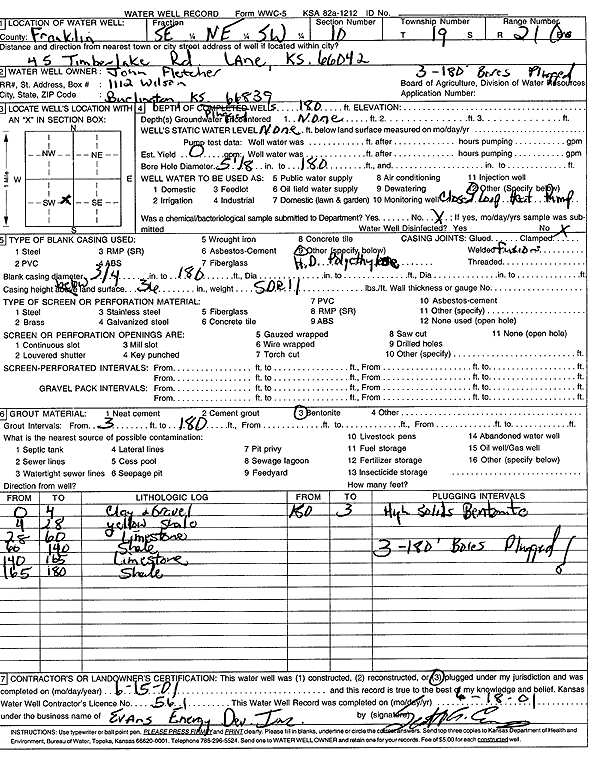 WATER WELL RECORD Form WWC-5 KSA 82a-1212 ID No.
1 LOCATION OF WATER WELL: Fraction Section Number Township Number Range Number
County: Franklin SE ¼ NE ¼ SW ¼ 10 T 19 S R 21
Distance and direction from nearest town or city street address of well if located within city?
45 Timberlake Rd Lane, KS. 66042
2 WATER WELL OWNER: John Fletcher 3-180' Bores Plugged
RR#, St. Address, Box # : 1112 Wilson Board of Agriculture, Division of Water Resources
City, State, ZIP Code : Burlington KS 66839 Application Number:
3 LOCATE WELL'S LOCATION WITH AN "X" IN SECTION BOX:
N
NW NE
W E
SW X SE
S
1 Mile
4 DEPTH OF COMPLETED WELLS 180 ft. ELEVATION:
Plugged
Depth(s) Groundwater Encountered 1. None ft. 2. ft. 3. ft.
WELL'S STATIC WATER LEVEL None ft. below land surface measured on mo/day/yr
Pump test data: Well water was ft. after hours pumping gpm
Est. Yield 0 gpm; Well water was ft. after hours pumping gpm
Bore Hole Diameter 5 1/8 in. to 180 ft., and in. to ft.
WELL WATER TO BE USED AS: 5 Public water supply 8 Air conditioning 11 Injection well
1 Domestic 3 Feedlot 6 Oil field water supply 9 Dewatering 12 Other (Specify below)
2 Irrigation 4 Industrial 7 Domestic (lawn & garden) 10 Monitoring well Closed Loop Heat Pump
Was a chemical/bacteriological sample submitted to Department? Yes No X ; If yes, mo/day/yrs sample was submitted Water Well Disinfected? Yes No X
5 TYPE OF BLANK CASING USED: 5 Wrought iron 8 Concrete tile CASING JOINTS: Glued Clamped
1 Steel 3 RMP (SR) 6 Asbestos-Cement 9 Other (specify below) Welded Fusion
2 PVC 4 ABS 7 Fiberglass H.D. Polyethylene Threaded
Blank casing diameter 3/4 in. to 180 ft., Dia in. to ft., Dia in. to ft.
below
Casing height above land surface 36 in., weight SDR11 lbs./ft. Wall thickness or gauge No.
TYPE OF SCREEN OR PERFORATION MATERIAL: 7 PVC 10 Asbestos-cement
1 Steel 3 Stainless steel 5 Fiberglass 8 RMP (SR) 11 Other (specify)
2 Brass 4 Galvanized steel 6 Concrete tile 9 ABS 12 None used (open hole)
SCREEN OR PERFORATION OPENINGS ARE: 5 Gauzed wrapped 8 Saw cut 11 None (open hole)
1 Continuous slot 3 Mill slot 6 Wire wrapped 9 Drilled holes
2 Louvered shutter 4 Key punched 7 Torch cut 10 Other (specify) ft.
SCREEN-PERFORATED INTERVALS: From ft. to ft., From ft. to ft.
From ft. to ft., From ft. to ft.
GRAVEL PACK INTERVALS: From ft. to ft., From ft. to ft.
From ft. to ft., From ft. to ft.
6 GROUT MATERIAL: 1 Neat cement 2 Cement grout 3 Bentonite 4 Other
Grout Intervals: From 3 ft. to 180 ft., From ft. to ft., From ft. to ft.
What is the nearest source of possible contamination: 10 Livestock pens 14 Abandoned water well
1 Septic tank 4 Lateral lines 7 Pit privy 11 Fuel storage 15 Oil well/Gas well
2 Sewer lines 5 Cess pool 8 Sewage lagoon 12 Fertilizer storage 16 Other (specify below)
3 Watertight sewer lines 6 Seepage pit 9 Feedyard 13 Insecticide storage
Direction from well? How many feet?
FROM TO LITHOLOGIC LOG FROM TO PLUGGING INTERVALS
0 4 Clay & Gravel 180 3 High Solids Bentonite
4 28 Yellow Shale
28 60 Limestone
60 140 Shale 3-180' Bores Plugged!
140 165 Limestone
165 180 Shale
7 CONTRACTOR'S OR LANDOWNER'S CERTIFICATION: This water well was (1) constructed, (2) reconstructed, or (3) plugged under my jurisdiction and was
completed on (mo/day/year) 6-15-01 and this record is true to the best of my knowledge and belief. Kansas
Water Well Contractor's Licence No. 561 This Water Well Record was completed on (mo/day/yr) 6-18-01
under the business name of Evans Energy Dev. Inc. by (signature)
INSTRUCTIONS: Use typewriter or ball point pen. PLEASE PRESS FIRMLY and PRINT clearly. Please fill in blanks, underline or circle the correct answers. Send top three copies to Kansas Department of Health and
Environment, Bureau of Water, Topeka, Kansas 66620-0001. Telephone 785-296-5524. Send one to WATER WELL OWNER and retain one for your records. Fee of $5.00 for each constructed well.